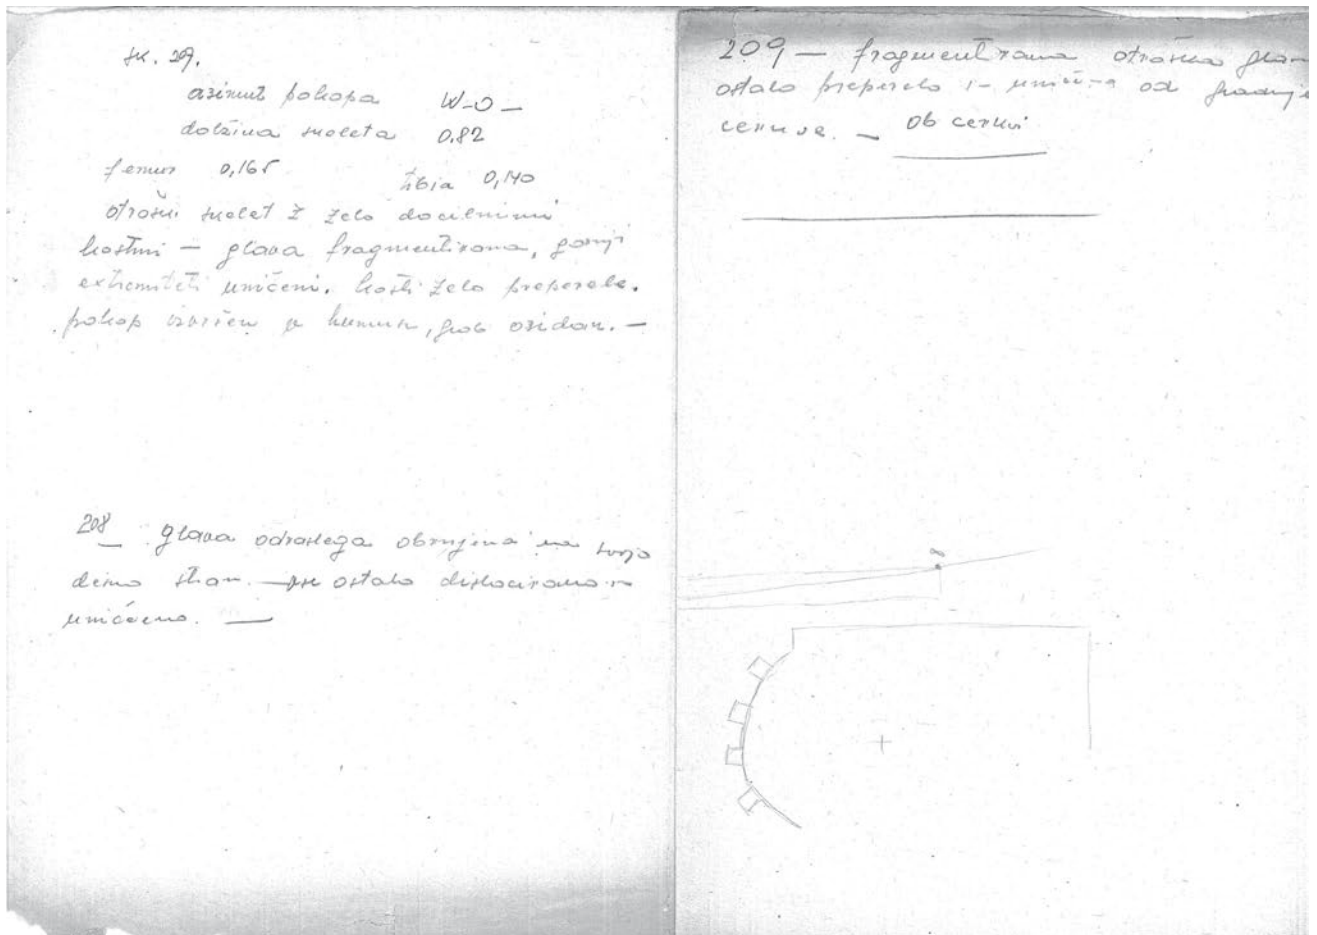 sk. 209.
azimut pokopa W-O —
dolžina skeleta 0.82
femur 0,165 tibia 0,140
otroški skelet z zelo
kostmi — glava fragmentirana, gornji
extremiteti uničeni. kosti zelo preperele.
pokop izvršen v humusu, grob ozidan. —
208 — glava odraslega obrnjena na svojo
desno stran. — vse ostalo dislocirano in
uničeno. —
209 — fragmentirana otroška glava
ostalo preperelo in uničeno od gradnje
cerkve. — ob cerkvi